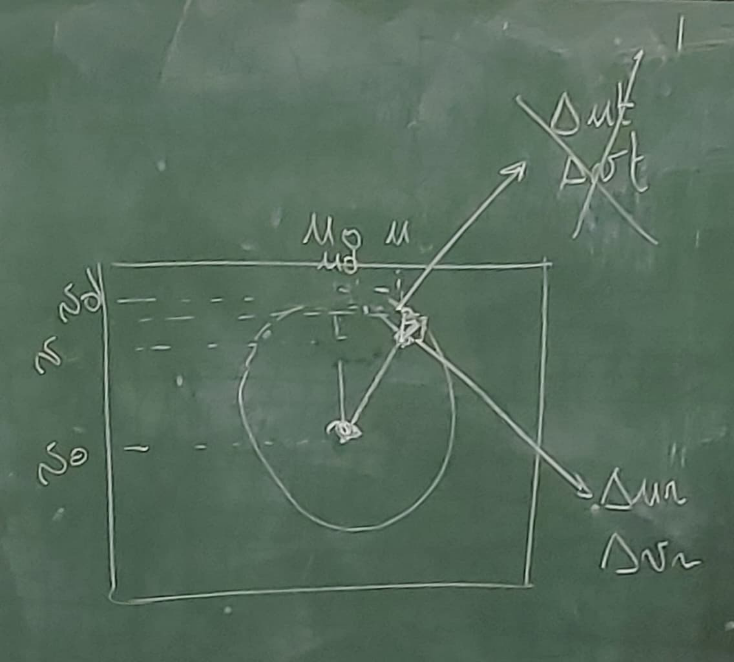 Δut
Δvt
u₀ u
ud
vd
v
v₀
Δur
Δvr